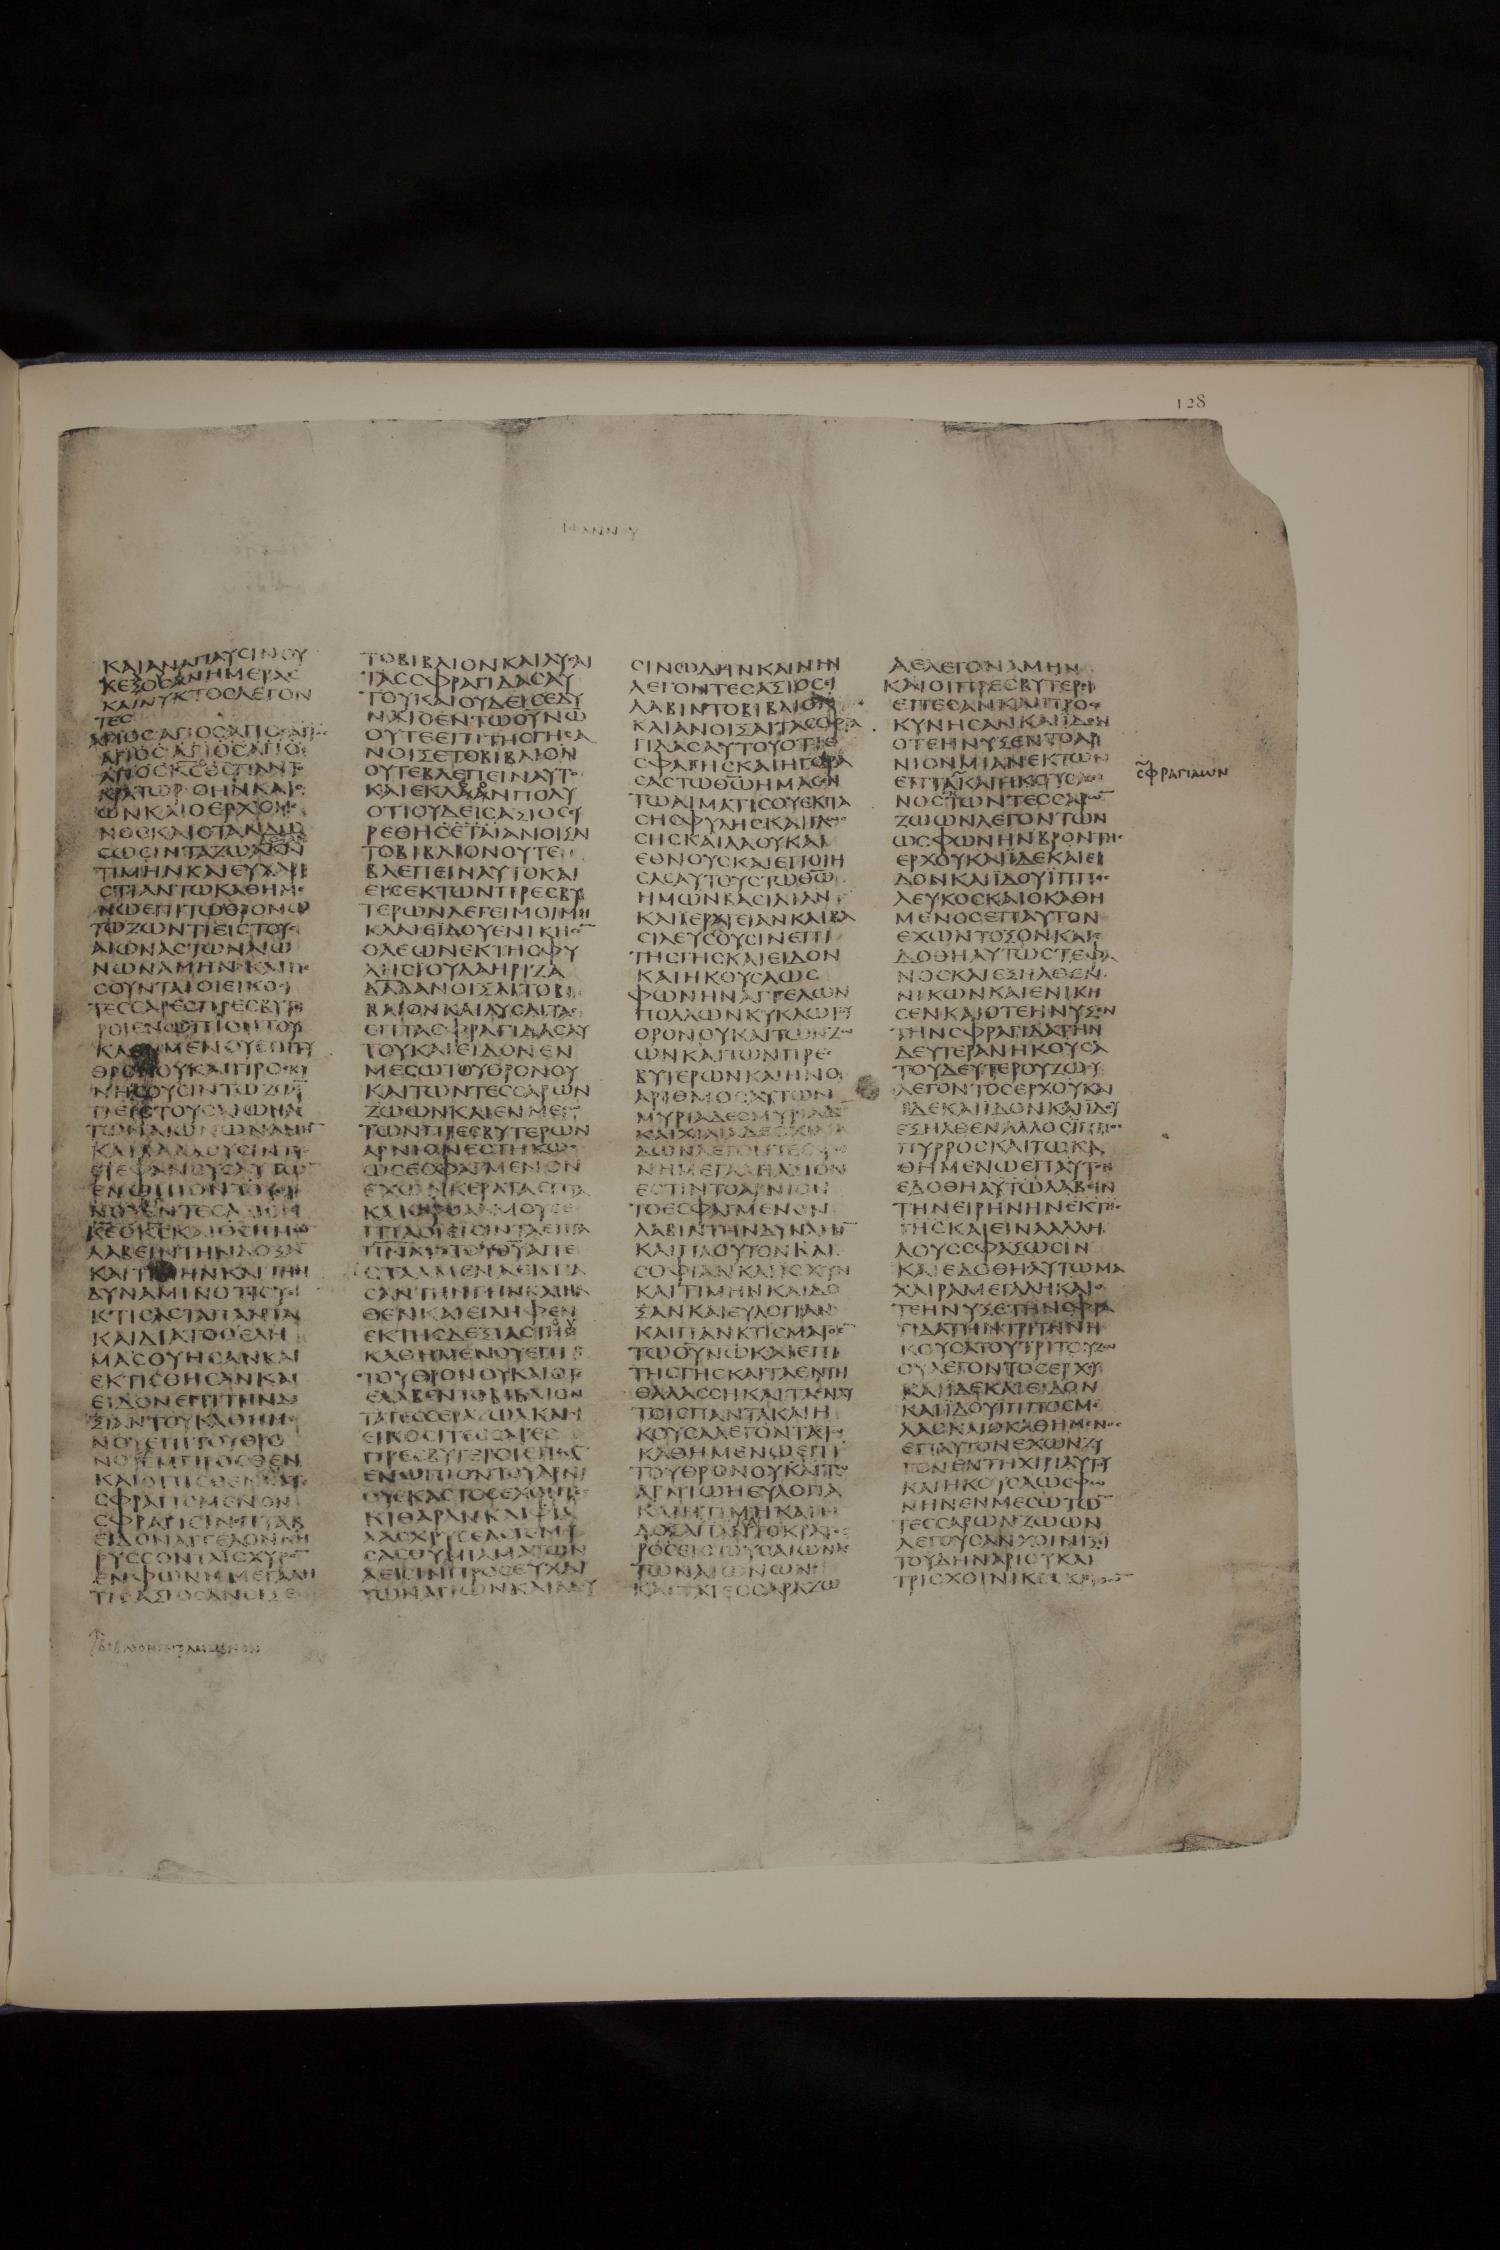 128
ΙΩΑΝΝΟΥ
ΚΑΙΑΝΑΠΑΥϹΙΝΟΥ
ΚΕΞΟϹΑΝΗΜΕΡΑϹ
ΚΑΙΝΥΚΤΟϹΛΕΓΟΝ
ΤΕϹ
ΑΓΙΟϹΑΓΙΟϹΑΓΙ
ΑΓΙΟϹΑΓΙΟϹΑΓΙΟϹ
ΑΓΙΟϹΚϹΟΘϹΠΑΝΤ
ΚΡΑΤΩΡΟΗΝΚΑΙ
ΩΝΚΑΙΟΕΡΧΟΜΕ
ΝΟϹΚΑΙΟΤΑΝΔΩ
ϹΩϹΙΝΤΑΖΩΑ
ΤΙΜΗΝΚΑΙΕΥΧΑΡΙ
ϹΤΙΑΝΤΩΚΑΘΗΜΕ
ΝΩΕΠΙΤΩΘΡΟΝΩ
ΤΩΖΩΝΤΙΕΙϹΤΟΥϹ
ΑΙΩΝΑϹΤΩΝΑΙΩ
ΝΩΝΑΜΗΝΚΑΙΠΕ
ϹΟΥΝΤΑΙΟΙΕΙΚΟϹΙ
ΤΕϹϹΑΡΕϹΠΡΕϹΒΥΤΕ
ΡΟΙΕΝΩΠΙΟΝΤΟΥ
ΚΑΘΗΜΕΝΟΥΕΠΙΤΟΥ
ΘΡΟΝΟΥΚΑΙΠΡΟϹΚΥ
ΝΗϹΟΥϹΙΝΤΩΖΩΝ
ΤΙΕΙϹΤΟΥϹΑΙΩΝΑϹ
ΤΩΝΑΙΩΝΩΝΑΜΗΝ
ΚΑΙΒΑΛΛΟΥϹΙΝΤΟΥϹ
ϹΤΕΦΑΝΟΥϹΑΥΤΩΝ
ΕΝΩΠΙΟΝΤΟΥΘΡΟ
ΝΟΥΛΕΓΟΝΤΕϹΑΞΙΟϹΕΙ
ΚΕΟΚϹΚΑΙΟΘϹΗΜΩ
ΛΑΒΕΙΝΤΗΝΔΟΞΑΝ
ΚΑΙΤΙΜΗΝΚΑΙΤΗΝ
ΔΥΝΑΜΙΝΟΤΙϹΥΕ
ΚΤΙϹΑϹΤΑΠΑΝΤΑ
ΚΑΙΔΙΑΤΟΘΕΛΗ
ΜΑϹΟΥΗϹΑΝΚΑΙ
ΕΚΤΙϹΘΗϹΑΝΚΑΙ
ΕΙΔΟΝΕΠΙΤΗΝΔΕ
ΞΙΑΝΤΟΥΚΑΘΗΜΕ
ΝΟΥΕΠΙΤΟΥΘΡΟ
ΝΟΥΕΜΠΡΟϹΘΕΝ
ΚΑΙΟΠΙϹΘΕΝΚΑΤΕ
ϹΦΡΑΓΙϹΜΕΝΟΝ
ϹΦΡΑΓΙϹΙΝΕΠΤΑΚ
ΕΙΔΟΝΑΓΓΕΛΟΝΚΗ
ΡΥϹϹΟΝΤΑΙϹΧΥΡΟΝ
ΕΝΦΩΝΗΜΕΓΑΛΗ
ΤΙϹΑΞΙΟϹΑΝΟΙΞΕ
ΒΙΒΛΙΟΝΓΕΓΡΑΜΜΕΝΟΝ
ΤΟΒΙΒΛΙΟΝΚΑΙΛΥϹΑΙ
ΤΑϹϹΦΡΑΓΙΔΑϹΑΥ
ΤΟΥΚΑΙΟΥΔΕΙϹΕΔΥ
ΝΑΤΟΕΝΤΩΟΥΝΩ
ΟΥΤΕΕΠΙΤΗϹΓΗϹΑ
ΝΟΙΞΕΤΟΒΙΒΛΙΟΝ
ΟΥΤΕΒΛΕΠΕΙΝΑΥΤΟ
ΚΑΙΕΚΛΑΙΟΝΠΟΛΥ
ΟΤΙΟΥΔΕΙϹΑΞΙΟϹΕΥ
ΡΕΘΗϹΕΤΑΙΑΝΟΙΞΑΙ
ΤΟΒΙΒΛΙΟΝΟΥΤΕ
ΒΛΕΠΕΙΝΑΥΤΟΚΑΙ
ΕΙϹΕΚΤΩΝΠΡΕϹΒΥ
ΤΕΡΩΝΛΕΓΕΙΜΟΙΜΗ
ΚΛΑΙΕΙΔΟΥΕΝΙΚΗϹΕΝ
ΟΛΕΩΝΕΚΤΗϹΦΥ
ΛΗϹΙΟΥΔΑΗΡΙΖΑ
ΔΑΔΑΝΟΙΞΑΙΤΟΒΙ
ΒΛΙΟΝΚΑΙΛΥϹΑΙΤΑϹ
ΕΠΤΑϹΦΡΑΓΙΔΑϹΑΥ
ΤΟΥΚΑΙΕΙΔΟΝΕΝ
ΜΕϹΩΤΟΥΘΡΟΝΟΥ
ΚΑΙΤΩΝΤΕϹϹΑΡΩΝ
ΖΩΩΝΚΑΙΕΝΜΕϹΩ
ΤΩΝΠΡΕϹΒΥΤΕΡΩΝ
ΑΡΝΙΟΝΕϹΤΗΚΩϹ
ΩϹΕϹΦΑΓΜΕΝΟΝ
ΕΧΩΝΚΕΡΑΤΑΕΠΤΑ
ΚΑΙΟΦΘΑΛΜΟΥϹΕ
ΠΤΑΟΙΕΙϹΙΝΤΑΕΠΤΑ
ΠΝΑΤΑΤΟΥΘΥΑΠΕ
ϹΤΑΛΜΕΝΑΕΙϹΠΑ
ϹΑΝΤΗΝΓΗΝΚΑΙΗΛ
ΘΕΝΚΑΙΕΙΛΗΦΕΝ
ΕΚΤΗϹΔΕΞΙΑϹΤΟΥ
ΚΑΘΗΜΕΝΟΥΕΠΙ
ΤΟΥΘΡΟΝΟΥΚΑΙΟΤΕ
ΕΛΑΒΕΝΤΟΒΙΒΛΙΟΝ
ΤΑΤΕϹϹΕΡΑΖΩΑΚΑΙΟΙ
ΕΙΚΟϹΙΤΕϹϹΑΡΕϹ
ΠΡΕϹΒΥΤΕΡΟΙΕΠΕϹ
ΕΝΩΠΙΟΝΤΟΥΑΡΝΙ
ΟΥΕΚΑϹΤΟϹΕΧΟΝΤΕϹ
ΚΙΘΑΡΑΝΚΑΙΦΙΑ
ΛΑϹΧΡΥϹΕΑϹΓΕΜΟΥ
ϹΑϹΘΥΜΙΑΜΑΤΩΝ
ΑΕΙϹΙΝΠΡΟϹΕΥΧΑΙ
ΤΩΝΑΓΙΩΝΚΑΙΑΔΟΥ
ϹΙΝΩΔΗΝΚΑΙΝΗΝ
ΛΕΓΟΝΤΕϹΑΞΙΟϹΕΙ
ΛΑΒΙΝΤΟΒΙΒΛΙΟΝ
ΚΑΙΑΝΟΙΞΑΙΤΑϹϹΦΡΑ
ΓΙΔΑϹΑΥΤΟΥΟΤΙΕ
ϹΦΑΓΗϹΚΑΙΗΓΟΡΑ
ϹΑϹΤΩΘΩΗΜΑϹΕΝ
ΤΩΑΙΜΑΤΙϹΟΥΕΚΠΑ
ϹΗϹΦΥΛΗϹΚΑΙΓΛΩϹ
ϹΗϹΚΑΙΛΑΟΥΚΑΙ
ΕΘΝΟΥϹΚΑΙΕΠΟΙΗ
ϹΑϹΑΥΤΟΥϹΤΩΘΩ
ΗΜΩΝΒΑϹΙΛΙΑΝ
ΚΑΙΙΕΡΑΤΕΙΑΝΚΑΙΒΑ
ϹΙΛΕΥϹΟΥϹΙΝΕΠΙ
ΤΗϹΓΗϹΚΑΙΕΙΔΟΝ
ΚΑΙΗΚΟΥϹΑΩϹ
ΦΩΝΗΝΑΓΓΕΛΩΝ
ΠΟΛΛΩΝΚΥΚΛΩΤΟΥ
ΘΡΟΝΟΥΚΑΙΤΩΝΖΩ
ΩΝΚΑΙΤΩΝΠΡΕϹ
ΒΥΤΕΡΩΝΚΑΙΗΝΟ
ΑΡΙΘΜΟϹΑΥΤΩΝ
ΜΥΡΙΑΔΕϹΜΥΡΙΑΔΩ
ΚΑΙΧΙΛΙΑΔΕϹΧΙΛΙΑ
ΔΩΝΛΕΓΟΝΤΕϹΦΩ
ΝΗΜΕΓΑΛΗΑΞΙΟΝ
ΕϹΤΙΝΤΟΑΡΝΙΟΝ
ΤΟΕϹΦΑΓΜΕΝΟΝ
ΛΑΒΙΝΤΗΝΔΥΝΑΜΙΝ
ΚΑΙΠΛΟΥΤΟΝΚΑΙ
ϹΟΦΙΑΝΚΑΙΙϹΧΥΝ
ΚΑΙΤΙΜΗΝΚΑΙΔΟ
ΞΑΝΚΑΙΕΥΛΟΓΙΑΝ
ΚΑΙΠΑΝΚΤΙϹΜΑΤΟΕΝ
ΤΩΟΥΝΩΚΑΙΕΠΙ
ΤΗϹΓΗϹΚΑΙΤΑΕΝΤΗ
ΘΑΛΑϹϹΗΚΑΙΤΑΕΝΑΥ
ΤΟΙϹΠΑΝΤΑΚΑΙΗ
ΚΟΥϹΑΛΕΓΟΝΤΑϹΤΩ
ΚΑΘΗΜΕΝΩΕΠΙ
ΤΟΥΘΡΟΝΟΥΚΑΙΤΩ
ΑΡΝΙΩΗΕΥΛΟΓΙΑ
ΚΑΙΗΤΙΜΗΚΑΙΗ
ΔΟΞΑΠΑΝΤΟΚΡΑΤΟ
ΡΟϹΕΙϹΤΟΥϹΑΙΩΝΑϹ
ΤΩΝΑΙΩΝΩΝ
ΚΑΙΤΑΤΕϹϹΑΡΑΖΩ
ΑΕΛΕΓΟΝΑΜΗΝ
ΚΑΙΟΙΠΡΕϹΒΥΤΕΡΟΙ
ΕΠΕϹΑΝΚΑΙΠΡΟϹ
ΚΥΝΗϹΑΝΚΑΙΙΔΟΝ
ΟΤΕΗΝΥΞΕΝΤΟΑΡ
ΝΙΟΝΜΙΑΝΕΚΤΩΝ
ΕΠΤΑΚΑΙΗΚΟΥϹΑΕ
ϹΦΡΑΓΙΔΩΝ
ΝΟϹΤΩΝΤΕϹϹΑΡΩΝ
ΖΩΩΝΛΕΓΟΝΤΩΝ
ΩϹΦΩΝΗΝΒΡΟΝΤΗϹ
ΕΡΧΟΥΚΑΙΪΔΕΚΑΙΕΙ
ΔΟΝΚΑΙΪΔΟΥΪΠΠΟϹ
ΛΕΥΚΟϹΚΑΙΟΚΑΘΗ
ΜΕΝΟϹΕΠΑΥΤΟΝ
ΕΧΩΝΤΟΞΟΝΚΑΙ
ΔΟΘΗΑΥΤΩϹΤΕΦΑ
ΝΟϹΚΑΙΕΞΗΛΘΕΝ
ΝΙΚΩΝΚΑΙΕΝΙΚΗ
ϹΕΝΚΑΙΟΤΕΗΝΥΞΕΝ
ΤΗΝϹΦΡΑΓΙΔΑΤΗΝ
ΔΕΥΤΕΡΑΝΗΚΟΥϹΑ
ΤΟΥΔΕΥΤΕΡΟΥΖΩΟΥ
ΛΕΓΟΝΤΟϹΕΡΧΟΥΚΑΙ
ΪΔΕΚΑΙΙΔΟΝΚΑΙΙΔΟΥ
ΕΞΗΛΘΕΝΑΛΛΟϹΪΠΠΟϹ
ΠΥΡΡΟϹΚΑΙΤΩΚΑ
ΘΗΜΕΝΩΕΠΑΥΤΟΝ
ΕΔΟΘΗΑΥΤΩΛΑΒΕΙΝ
ΤΗΝΕΙΡΗΝΗΝΕΚΤΗϹ
ΓΗϹΚΑΙΕΙΝΑΑΛΛΗ
ΛΟΥϹϹΦΑΞΩϹΙΝ
ΚΑΙΕΔΟΘΗΑΥΤΩΜΑ
ΧΑΙΡΑΜΕΓΑΛΗΚΑΙΟ
ΤΕΗΝΥΞΕΤΗΝϹΦΡΑ
ΓΙΔΑΤΗΝΤΡΙΤΗΝΗ
ΚΟΥϹΑΤΟΥΤΡΙΤΟΥΖΩ
ΟΥΛΕΓΟΝΤΟϹΕΡΧΟΥ
ΚΑΙΪΔΕΚΑΙΕΙΔΟΝ
ΚΑΙΪΔΟΥΪΠΠΟϹΜΕ
ΛΑϹΚΑΙΟΚΑΘΗΜΕΝΟϹ
ΕΠΑΥΤΟΝΕΧΩΝΖΥ
ΓΟΝΕΝΤΗΧΙΡΙΑΥΤΟΥ
ΚΑΙΗΚΟΥϹΑΩϹΦΩ
ΝΗΝΕΝΜΕϹΩΤΩΝ
ΤΕϹϹΑΡΩΝΖΩΩΝ
ΛΕΓΟΥϹΑΝΧΟΙΝΙΞϹΙ
ΤΟΥΔΗΝΑΡΙΟΥΚΑΙ
ΤΡΙϹΧΟΙΝΙΚΕϹΚΡΙΘΩΝ